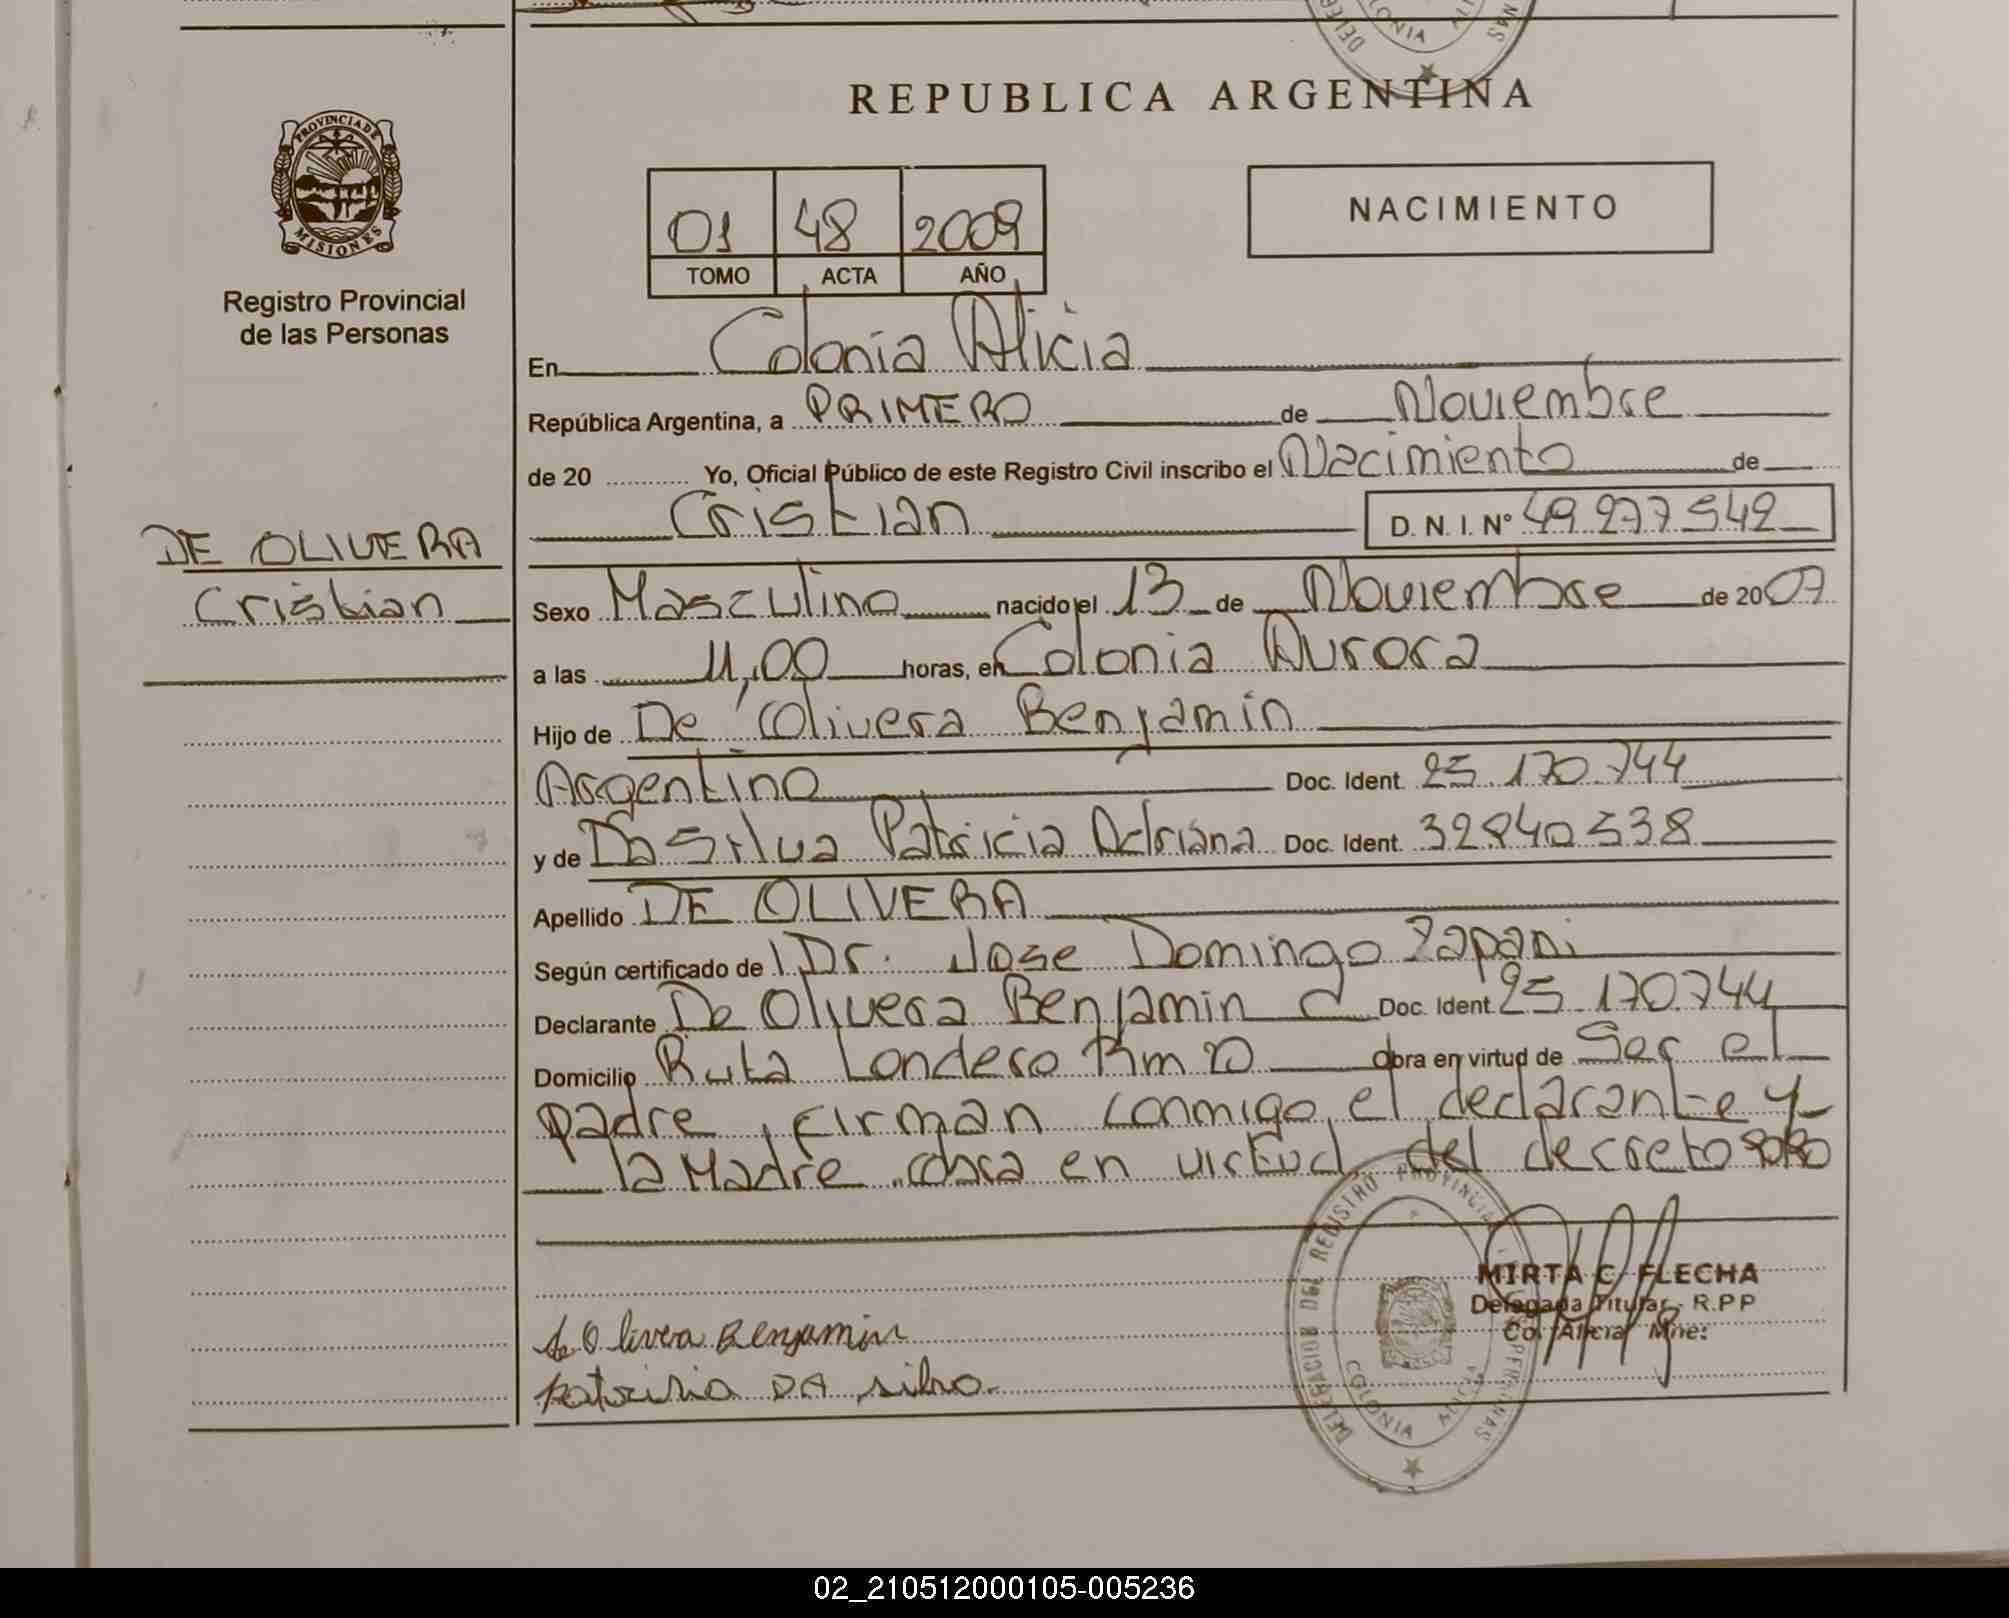 REPUBLICA ARGENTINA
PROVINCIA DE
MISIONES
Registro Provincial
de las Personas
01 48 2009
TOMO ACTA AÑO
NACIMIENTO
En Colonia Alicia
República Argentina, a PRIMERO de Noviembre
de 20 ............ Yo, Oficial Público de este Registro Civil inscribo el Nacimiento de
Cristian D. N. I. Nº 49 277 542
DE OLIVERA
Cristian
Sexo Masculino nacido el 13 de Noviembre de 2007
a las 11,00 horas, en Colonia Aurora
Hijo de De Olivera Benjamin
Argentino Doc. Ident. 25.170.744
y de Da Silva Patricia Adriana Doc. Ident. 32840538
Apellido DE OLIVERA
Según certificado de Dr. Jose Domingo
Declarante De Olivera Benjamin Doc. Ident. 25.170.744
Domicilio Ruta Londero Km 20 obra en virtud de Ser el
padre, firman conmigo, el declarante y
la Madre obra en virtud del decreto
MIRTA C. FLECHA
Delegada Titular - R.P.P
Co. Alicia Mnes
de Olivera Benjamin
Patricia DA silva
DELEGACION DEL REGISTRO PROVINCIAL PERSONAS
COLONIA ALICIA
02_210512000105-005236